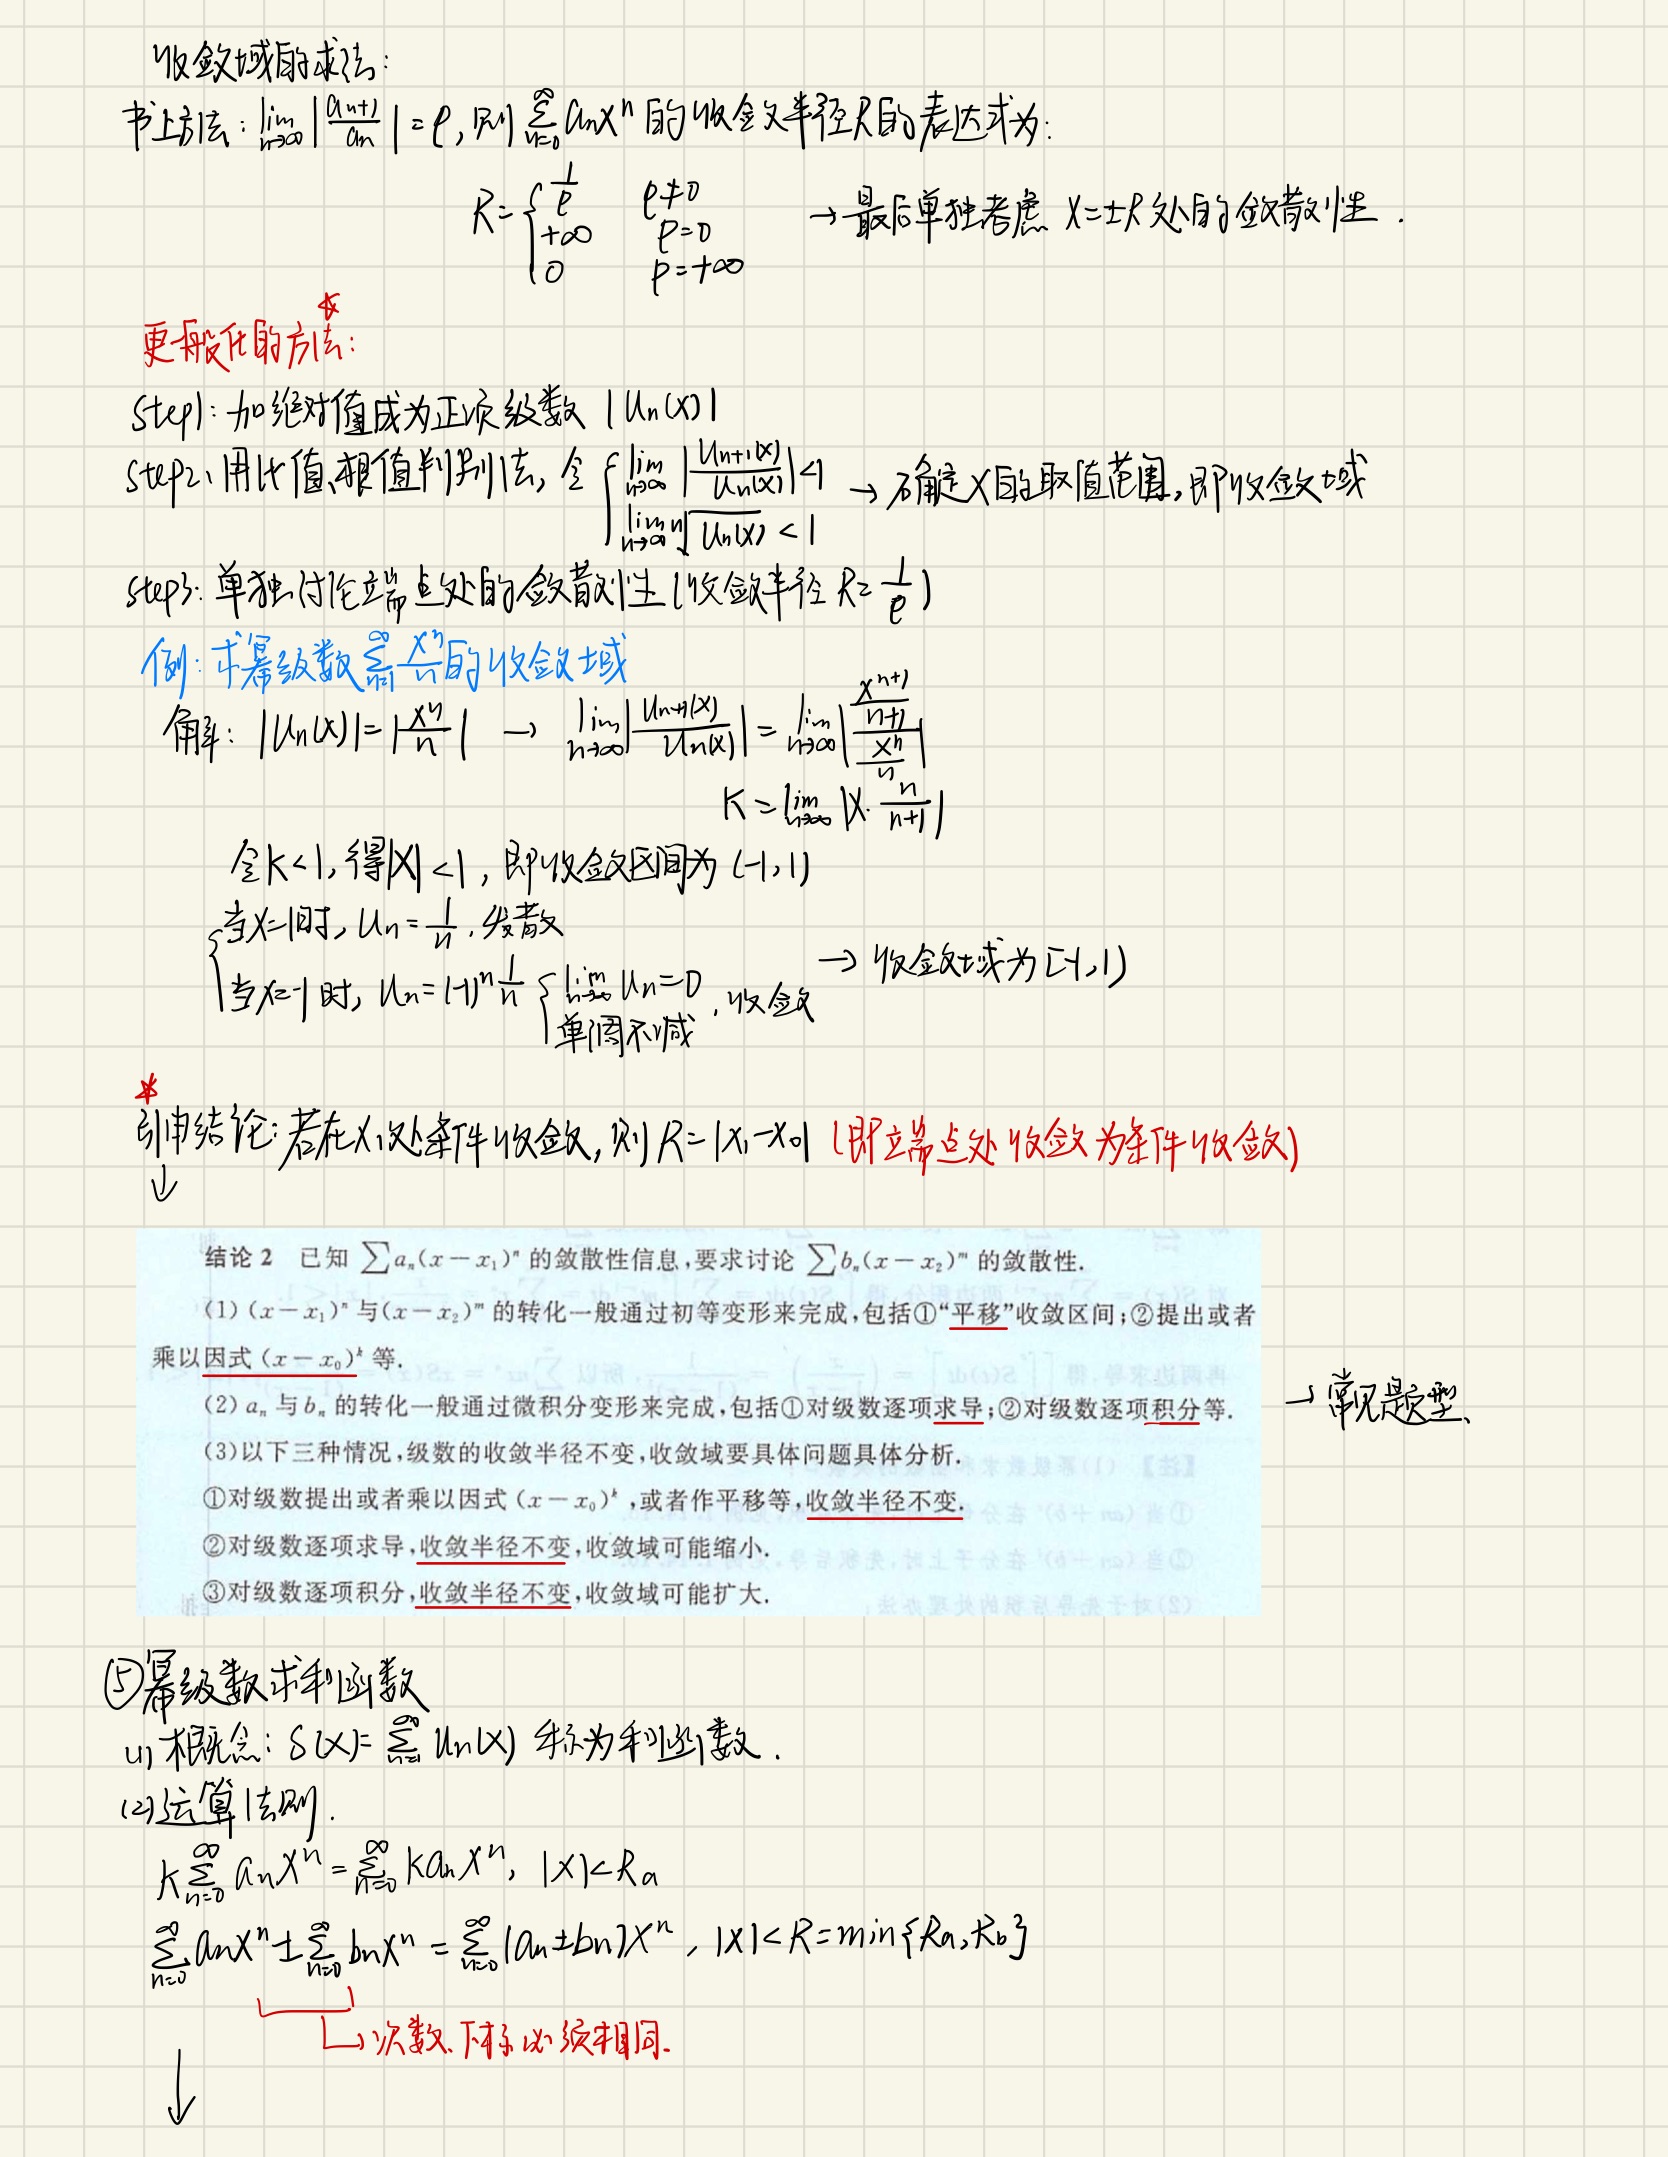 收敛域的求法:
书上方法: lim n→∞ |an+1/an| = ρ, 则 ∑n=0^∞ anx^n 的收敛半径R的表达式为:
R = { 1/ρ ρ≠0
+∞ ρ=0 → 最后单独考虑 x=±R 处的敛散性.
0 ρ=+∞
更一般化的方法: ☆
step1: 加绝对值成为正项级数 |un(x)|
step2: 用比值、根值判别法, 令 { lim n→∞ |un+1(x)/un(x)| < 1 → 确定x的取值范围, 即收敛域
lim n→∞ n√un(x) < 1
step3: 单独讨论端点处的敛散性 (收敛半径 R=1/ρ)
例: 求幂级数 ∑n=1^∞ x^n/n 的收敛域
解: |un(x)| = |x^n/n| → lim n→∞ |un+1(x)/un(x)| = lim n→∞ |(x^(n+1)/(n+1))/(x^n/n)|
K = lim n→∞ |x·n/(n+1)|
令K<1, 得|x|<1, 即收敛区间为 (-1,1)
{ 当x=1时, un=1/n, 发散
当x=-1时, un=(-1)^n 1/n { lim n→∞ un=0 , 收敛 → 收敛域为[-1,1)
单调不减
☆
引申结论: 若在x1处条件收敛, 则 R=|x1-x0| (即端点处收敛为条件收敛)
↓
结论 2 已知 ∑an(x-x1)^n 的敛散性信息,要求讨论 ∑bn(x-x2)^m 的敛散性.
(1) (x-x1)^n 与(x-x2)^m 的转化一般通过初等变形来完成,包括①“平移”收敛区间;②提出或者
乘以因式 (x-x0)^k 等.
(2) an 与 bn 的转化一般通过微积分变形来完成,包括①对级数逐项求导;②对级数逐项积分等. → 常见题型、
(3)以下三种情况,级数的收敛半径不变,收敛域要具体问题具体分析.
①对级数提出或者乘以因式 (x-x0)^k ,或者作平移等,收敛半径不变.
②对级数逐项求导,收敛半径不变,收敛域可能缩小.
③对级数逐项积分,收敛半径不变,收敛域可能扩大.
⑤幂级数求和函数
(1) 概念: S(x)=∑n=1^∞ un(x) 称为和函数.
(2)运算法则.
k∑n=0^∞ anx^n = ∑n=0^∞ kanx^n, |x|<Ra
∑n=0^∞ anx^n ± ∑n=0^∞ bnx^n = ∑n=0^∞ (an±bn)x^n, |x|<R=min{Ra,Rb}
→次数、下标必须相同.
↓